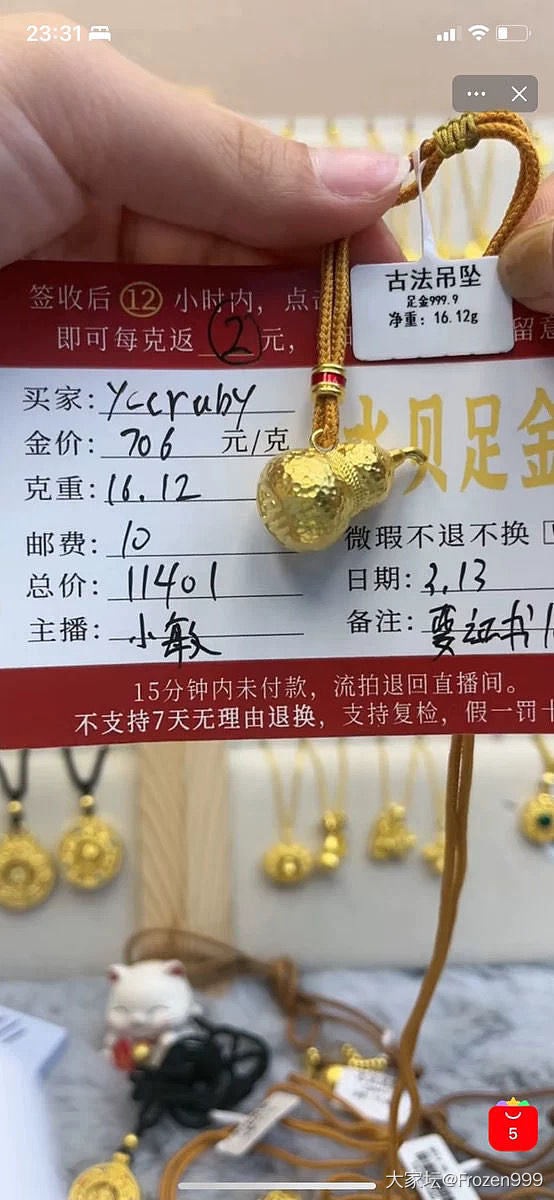 23:31
古法吊坠
足金999.9
净重：16.12g
签收后 12 小时内，点
即可每克返 2 元，
留意
买家：yccruby
金价：706 元/克
水贝足金
克重：16.12
邮费：10
微瑕不退不换
总价：11401
日期：3.13
主播：小敏
备注：要证书
15分钟内未付款，流拍退回直播间。
不支持7天无理由退换，支持复检，假一罚十
5
大家坛@Frozen999